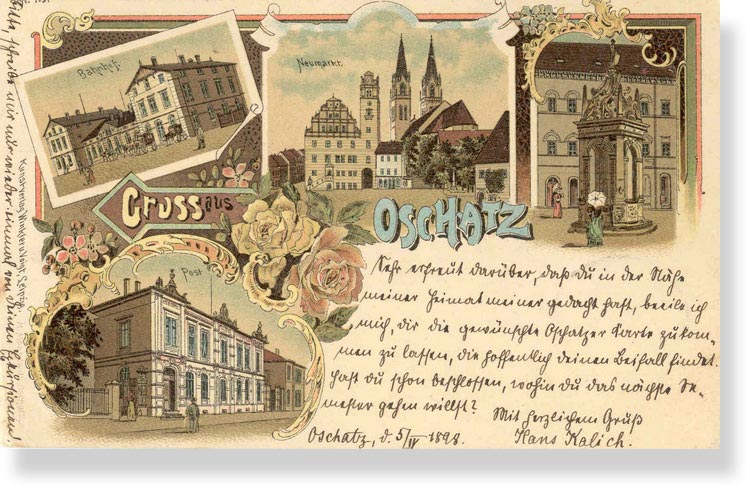 Bahnhof.
Neumarkt.
Gruss aus
OSCHATZ
Post
Kunstverlag Winkler u. Voigt, Leipzig
Sehr erfreut darüber, daß du in der Nähe
meiner Heimat meiner gedacht hast, beeile ich
mich dir die gewünschte Oschatzer Karte zukom-
men zu lassen, die hoffentlich deinen Beifall findet.
Hast du schon beschlossen, wohin du das nächste Se-
mester gehen willst?
Mit herzlichem Gruß
Hans Kalich.
Oschatz, d. 5/IV 1898.
Bitte, schreibe mir mir wieder einmal von deinen Exkursionen!